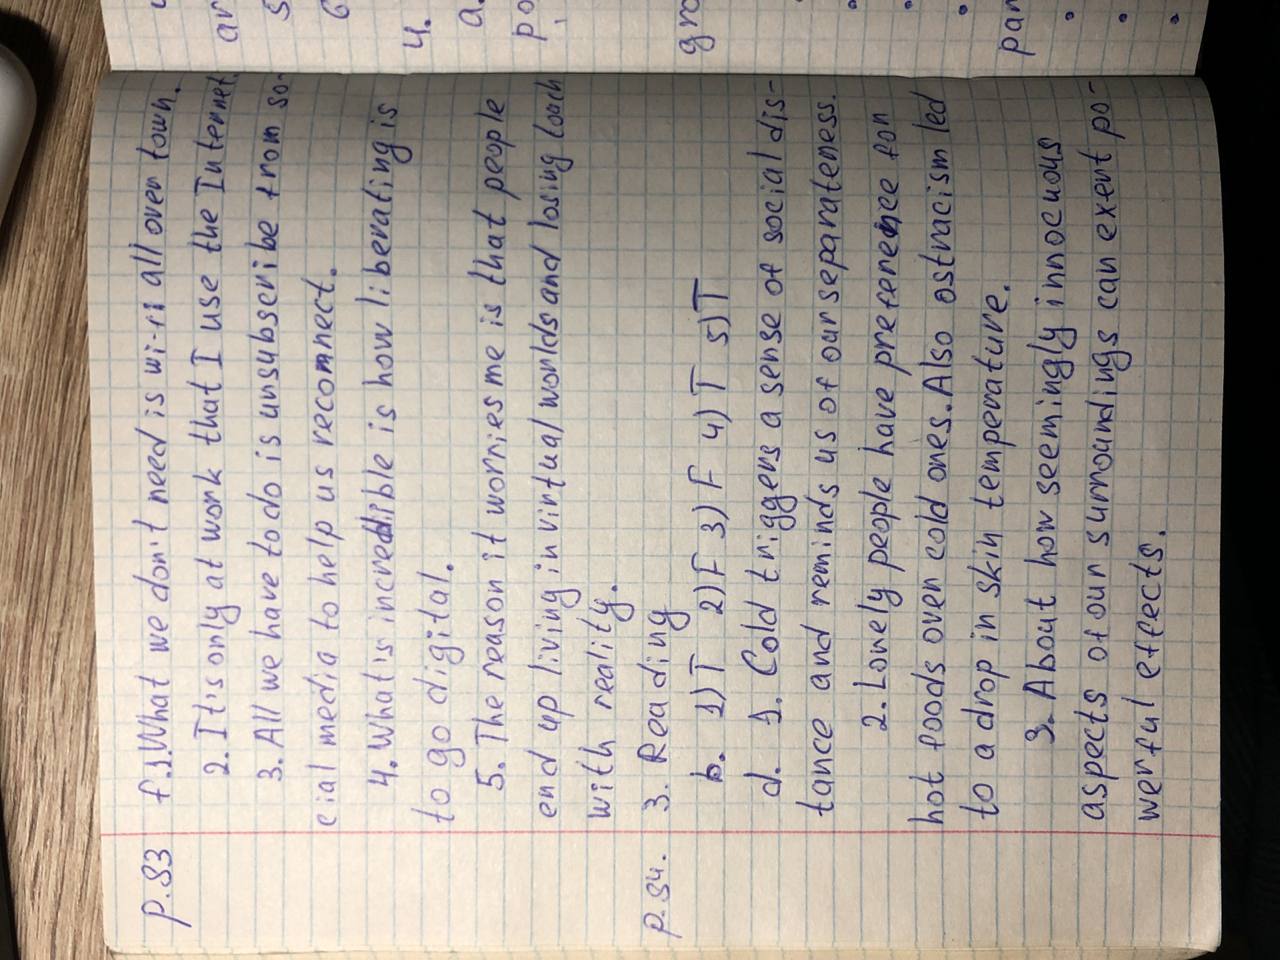 p.83 f.1. What we don't need is wi-fi all over town.
2. It's only at work that I use the Internet.
3. All we have to do is unsubscribe from so-
cial media to help us reconnect.
4. What's incredible is how liberating is
to go digital.
5. The reason it worries me is that people
end up living in virtual worlds and losing touch
with reality.
p.84. 3. Reading
b. 1) T 2) F 3) F 4) T 5) T
d. 1. Cold triggers a sense of social dis-
tance and reminds us of our separateness.
2. Lonely people have preference for
hot foods over cold ones. Also ostracism led
to a drop in skin temperature.
3. About how seemingly innocuous
aspects of our surroundings can exert po-
werful effects.